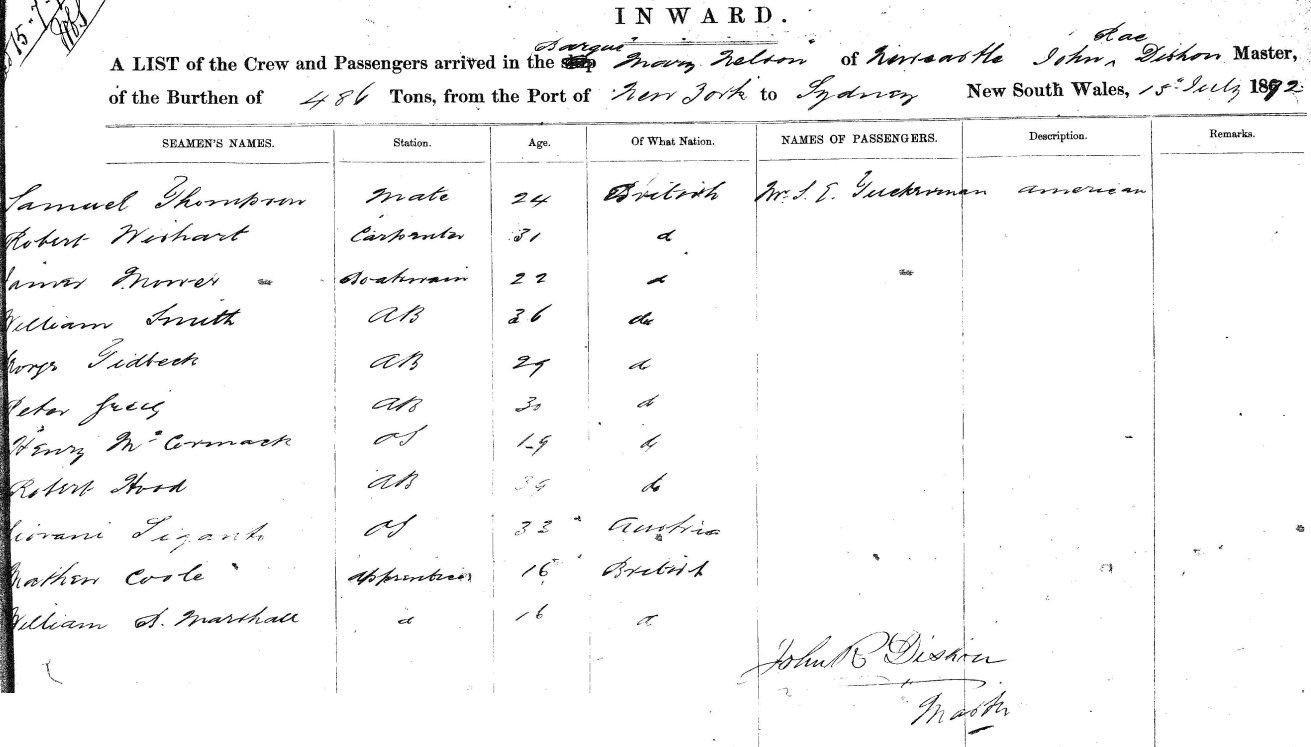 815-7-
INWARD.
Barque Rae
A LIST of the Crew and Passengers arrived in the Ship Mary Nelson of Newcastle John ^ Dishon Master,
of the Burthen of 486 Tons, from the Port of New York to Sydney New South Wales, 15 July 1872
SEAMEN'S NAMES. Station. Age. Of What Nation. NAMES OF PASSENGERS. Description. Remarks.
Samuel Thompson Mate 24 British Mr. S. E. Tuckerman American
Robert Wishart Carpenter 31 d
James Mower Boatswain 22 d
William Smith AB 36 do
George Tidbeck AB 29 d
Peter Greig AB 30 d
Henry McCormack OS 19 d
Robert Hood AB 39 do
Giovani Siganto OS 33 Austria
Mathew Coole Apprentice 16 British
William S. Marshall d 16 d
John R Dishon
Master